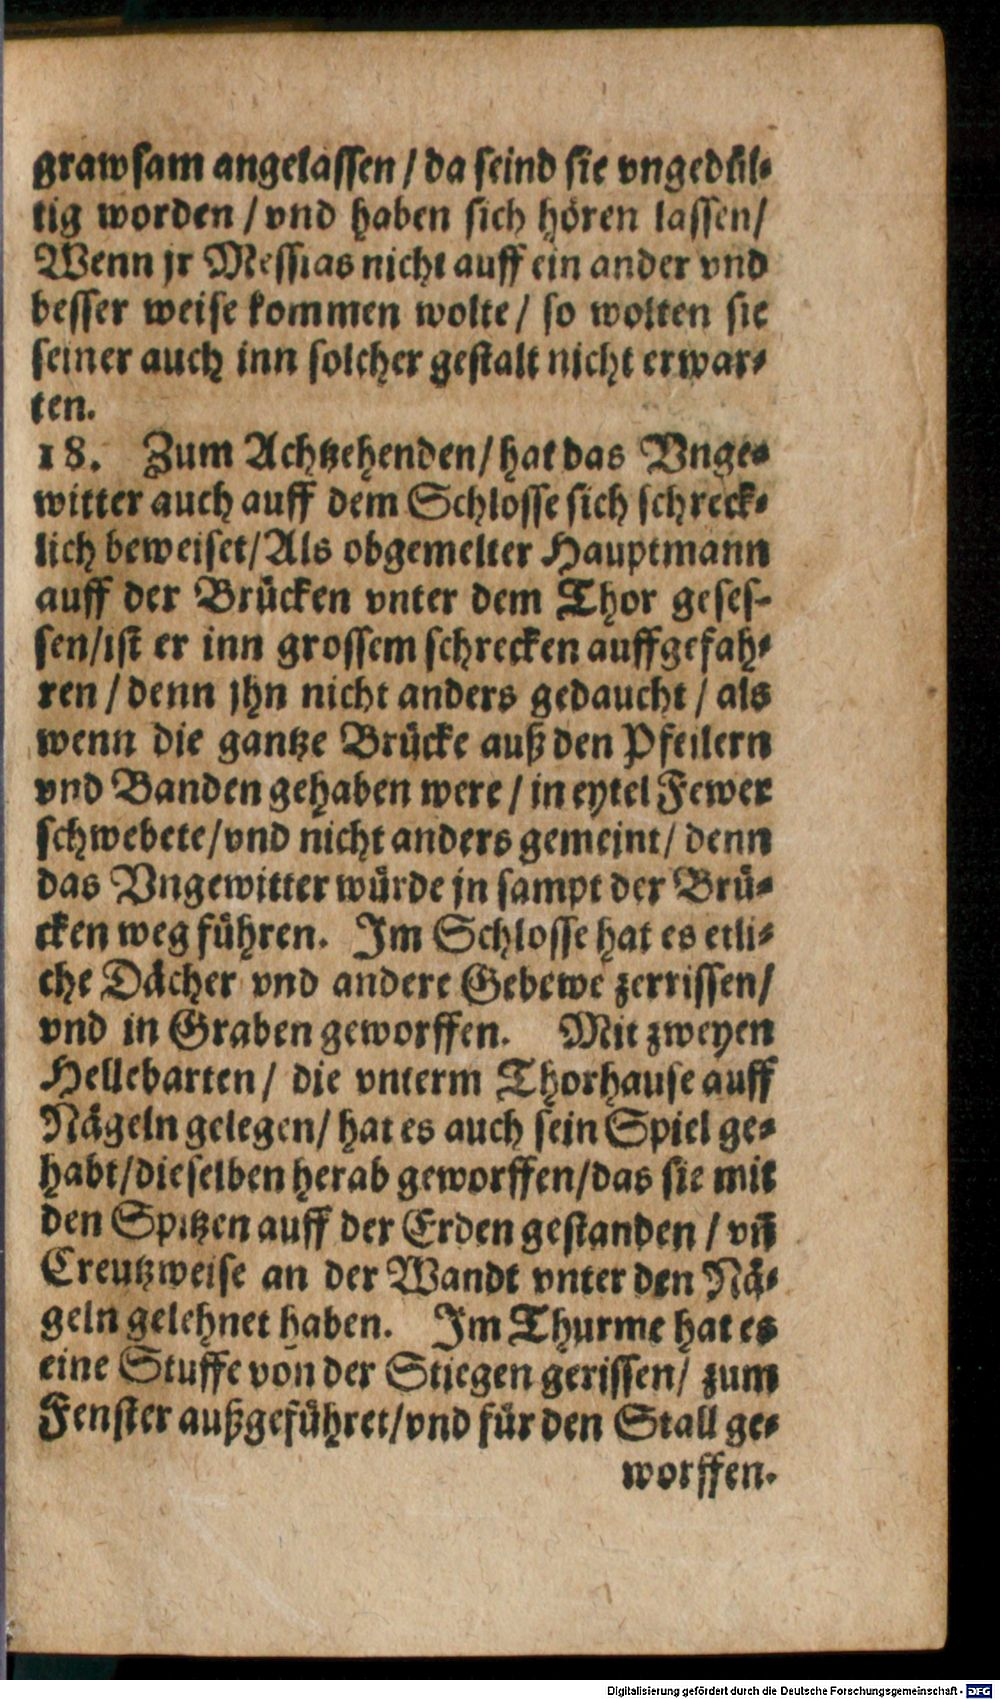 grawsam angelassen / da seind sie vngedül-
tig worden / vnd haben sich hören lassen/
Wenn jr Messias nicht auff ein ander vnd
besser weise kommen wolte / so wolten sie
seiner auch inn solcher gestalt nicht erwar-
ten.
18. Zum Achtzehenden / hat das Vnge-
witter auch auff dem Schlosse sich schreck-
lich beweiset/Als obgemelter Hauptmann
auff der Brücken vnter dem Thor geses-
sen/ist er inn grossem schrecken auffgefah-
ren / denn jhn nicht anders gedaucht / als
wenn die gantze Brücke auß den Pfeilern
vnd Banden gehaben were / in eytel Fewer
schwebete/vnd nicht anders gemeint/ denn
das Vngewitter würde jn sampt der Brü-
cken weg führen. Im Schlosse hat es etli-
che Dächer vnd andere Gebewe zerrissen/
vnd in Graben geworffen. Mit zweyen
Hellebarten / die vnterm Thorhause auff
Nägeln gelegen/ hat es auch sein Spiel ge-
habt/dieselben herab geworffen/das sie mit
den Spitzen auff der Erden gestanden / vñ
Creutzweise an der Wandt vnter den Nä-
geln gelehnet haben. Im Thurme hat es
eine Stuffe von der Stiegen gerissen/ zum
Fenster außgeführet/vnd für den Stall ge-
worffen.
Digitalisierung gefördert durch die Deutsche Forschungsgemeinschaft - DFG